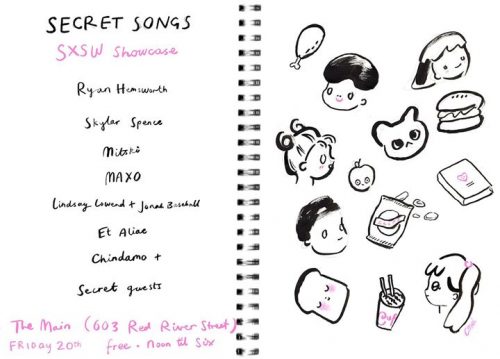 SECRET SONGS
SXSW Showcase
Ryan Hemsworth
Skylar Spence
Mitski
MAXO
Lindsay Lowend + Jonah Baseball
Et Aliae
Chindamo +
Secret guests
The Main (603 Red River Street)
FRIDAY 20th free · Noon til Six